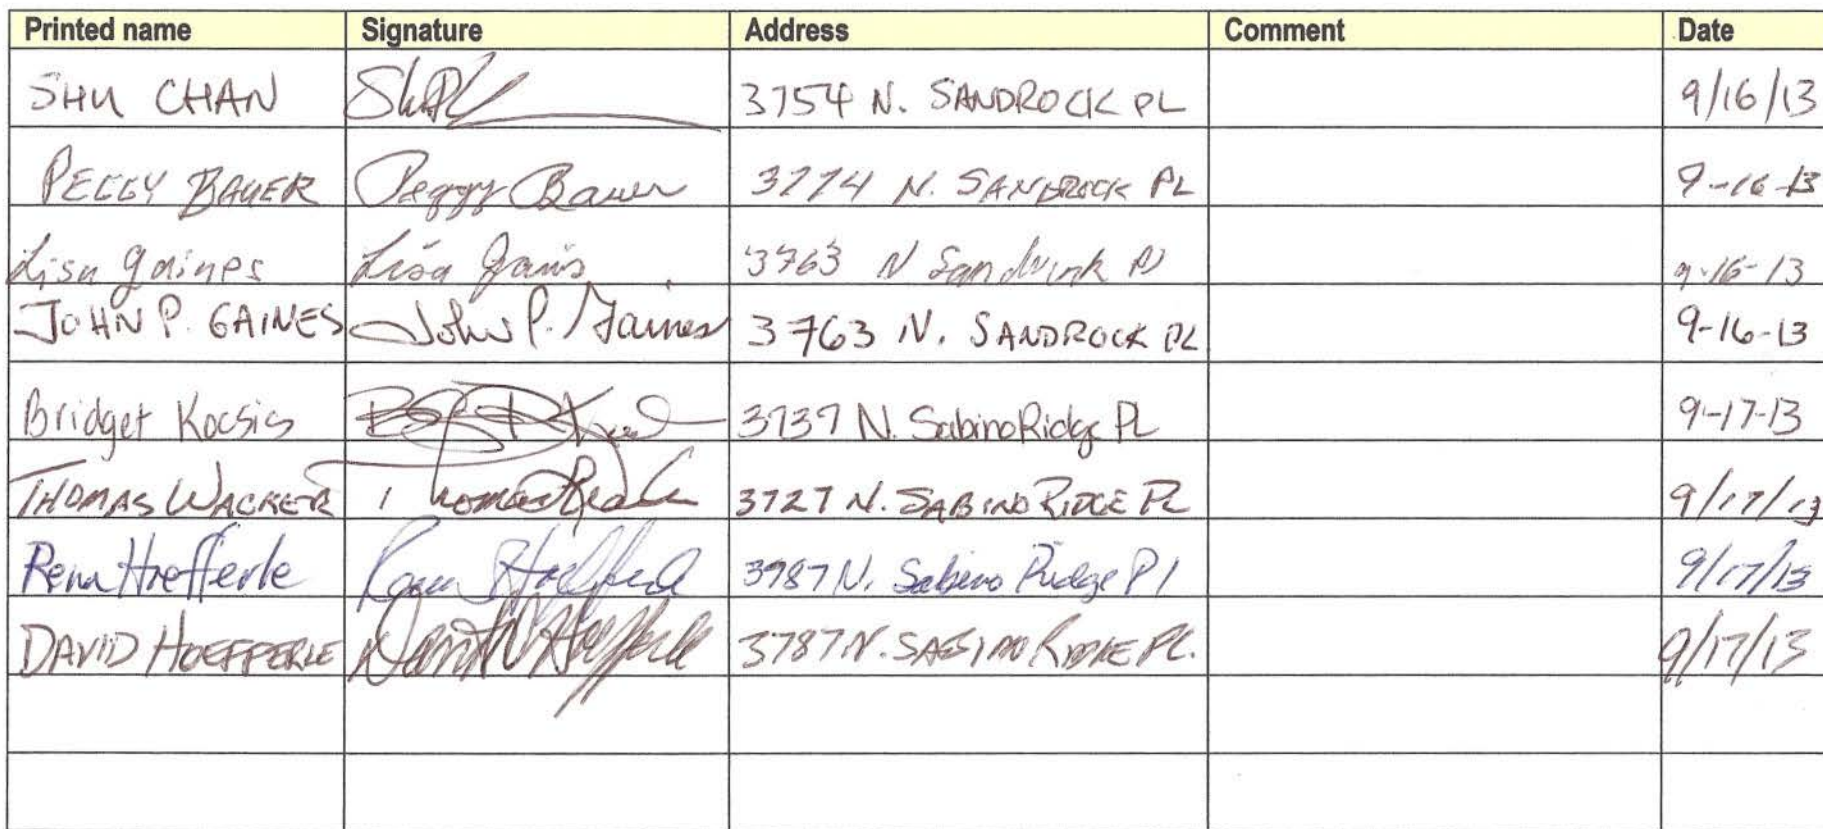 Printed name Signature Address Comment Date
SHU CHAN 3754 N. SANDROCK PL 9/16/13
PEGGY BAUER Peggy Bauer 3774 N. SANDROCK PL 9-16-13
Lisa Gaines Lisa Gaines 3763 N Sandrock Pl 9-16-13
JOHN P. GAINES John P. Gaines 3763 N. SANDROCK PL 9-16-13
Bridget Kocsis 3737 N. Sabino Ridge PL 9-17-13
THOMAS WACKER 3727 N. SABINO RIDGE PL 9/17/13
Hoefferle N. Sabino Ridge Pl 9/17/13
DAVID HOEFFERLE 3787 N. SABINO RIDGE PL. 9/17/13